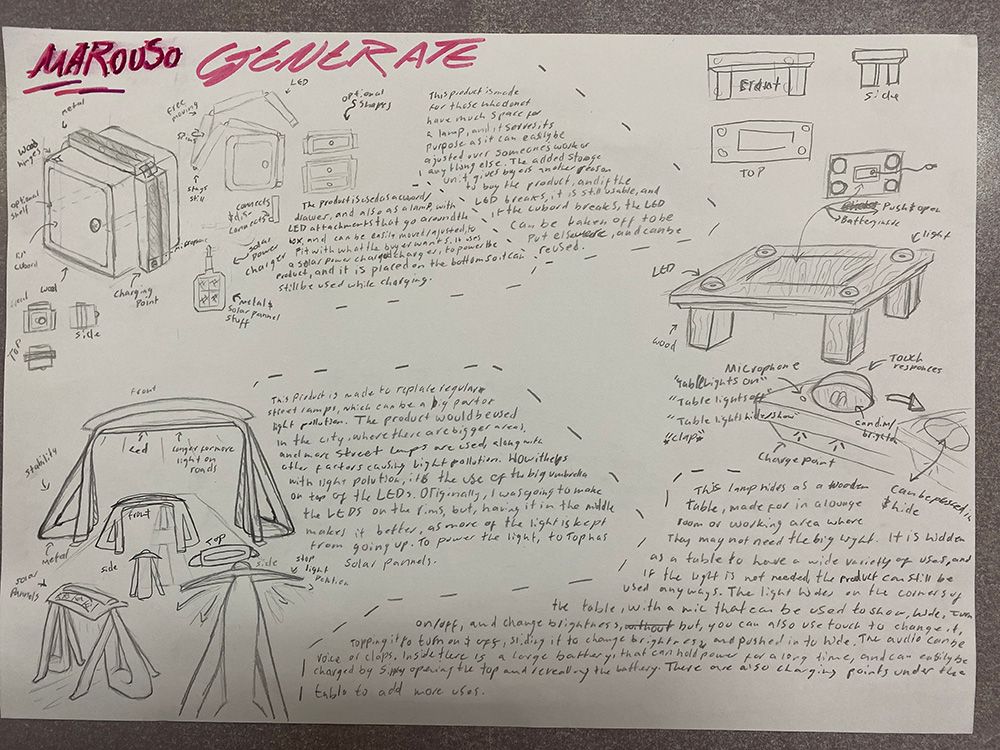 MAROUSO GENERATE
metal
Wood
hinges
optional
shelf
Cuboard
wood
Charging
Point
side
TOP
Free
moving
LED
stays
still
connects
& dis-
connects
optional
shapes
solar
power
charger
metal &
Solar pannel
stuff
The product is used as a cuboard/
drawer, and also as a lamp, with
LED attachments that go around the
box, and can be easily moved/adjusted to
fit with what the buyer wants. It uses
a solar power charger, to power the
product, and it is placed on the bottom so it can
still be used while charging.
This product is made
for those who do not
have much space for
a lamp, and it serves its
purpose as it can easily be
ajusted over someones work or
any thing else. The added storage
unit gives buyers another reason
to buy the product, and if the
LED breaks, it is still usable, and
if the cubord breaks, the LED
can be taken off to be
put elsewhere, and can be
reused.
Front
side
TOP
Push to open
Battery inside
light
LED
wood
Touch
responces
Microphone
"Table lights on"
"Table lights off"
"Table lights hide/show"
"claps"
Charge point
Can be pushed in
& hide
This lamp hides as a wooden
table, made for in a lounge
room or working area where
They may not need the big light. It is hidden
as a table to have a wide variety of uses, and
if the light is not needed, the product can still be
used anyways. The light hides on the corners of
the table, with a mic that can be used to show, hide, turn
on/off, and change brightness, without but, you can also use touch to change it,
Tapping it to turn on & off, sliding it to change brightness, and pushed in to hide. The audio can be
voice or claps. Inside there is a large battery, that can hold power for a long time, and can easily be
charged by simply opening the top and revealing the battery. There are also charging points under the
table to add more uses.
Front
Led
Longer for more
light on
roads
stability
Metal
front
side
Top
side
stop
light
Solar
pannels
This Product is made to replace regular
street lamps, which can be a big part of
light pollution. The product would be used
in the city, where there are bigger areas,
and more street lamps are used, along with
other factors causing light pollution. How it helps
with light polution, it's the use of the big umbrella
on top of the LEDs. Originally, I was going to make
the LEDS on the rims, but, having it in the middle
makes it better, as more of the light is kept
from going up. To power the light, to Top has
Solar Pannels.